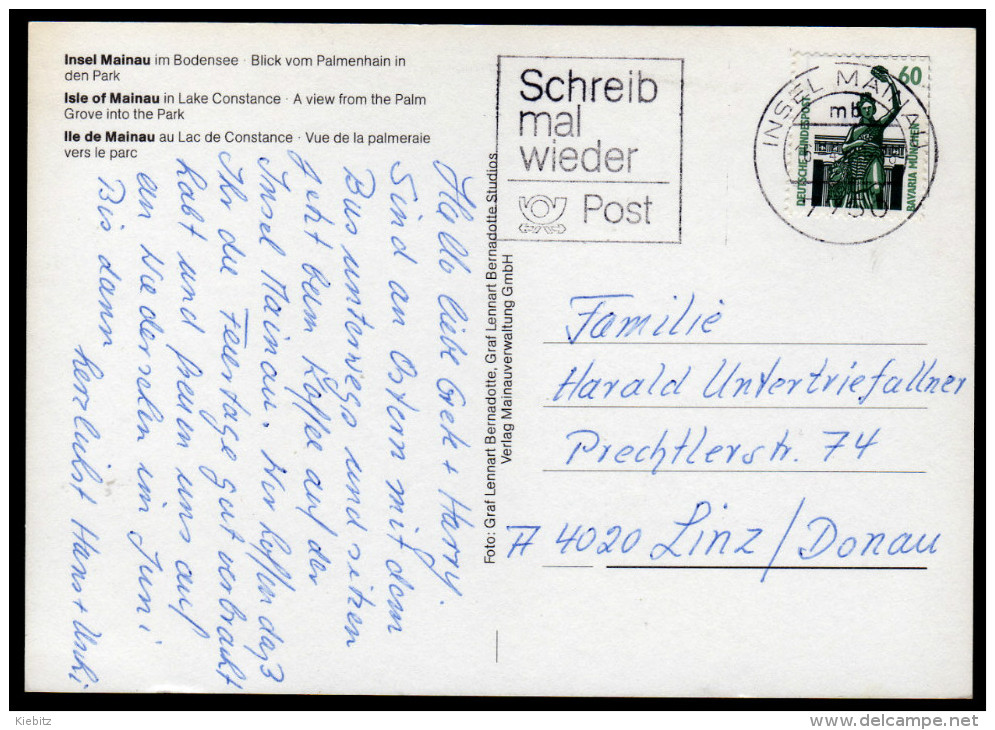 Insel Mainau im Bodensee · Blick vom Palmenhain in
den Park
Isle of Mainau in Lake Constance · A view from the Palm
Grove into the Park
Ile de Mainau au Lac de Constance · Vue de la palmeraie
vers le parc
Hallo liebe Grek + Harry.
Sind an Ostern mit dem
Bus unterwegs und sitzen
jetzt beim Kaffee auf der
Insel Mainau. Wir hoffen daß
Ihr die Feiertage gut verbracht
habt und freuen uns auf
ein Wiedersehen im Juni
Bis dann
herzlichst Hans + Uschi
Foto: Graf Lennart Bernadotte, Graf Lennart Bernadotte Studios
Verlag Mainauverwaltung GmbH
Schreib
mal
wieder
Post
INSEL MAINAU
mb
7750
60
DEUTSCHE BUNDESPOST
BAVARIA MÜNCHEN
Familie
Harald Untertriefallner
Prechtlerstr. 74
A 4020 Linz/Donau
Kiebitz
www.delcampe.net